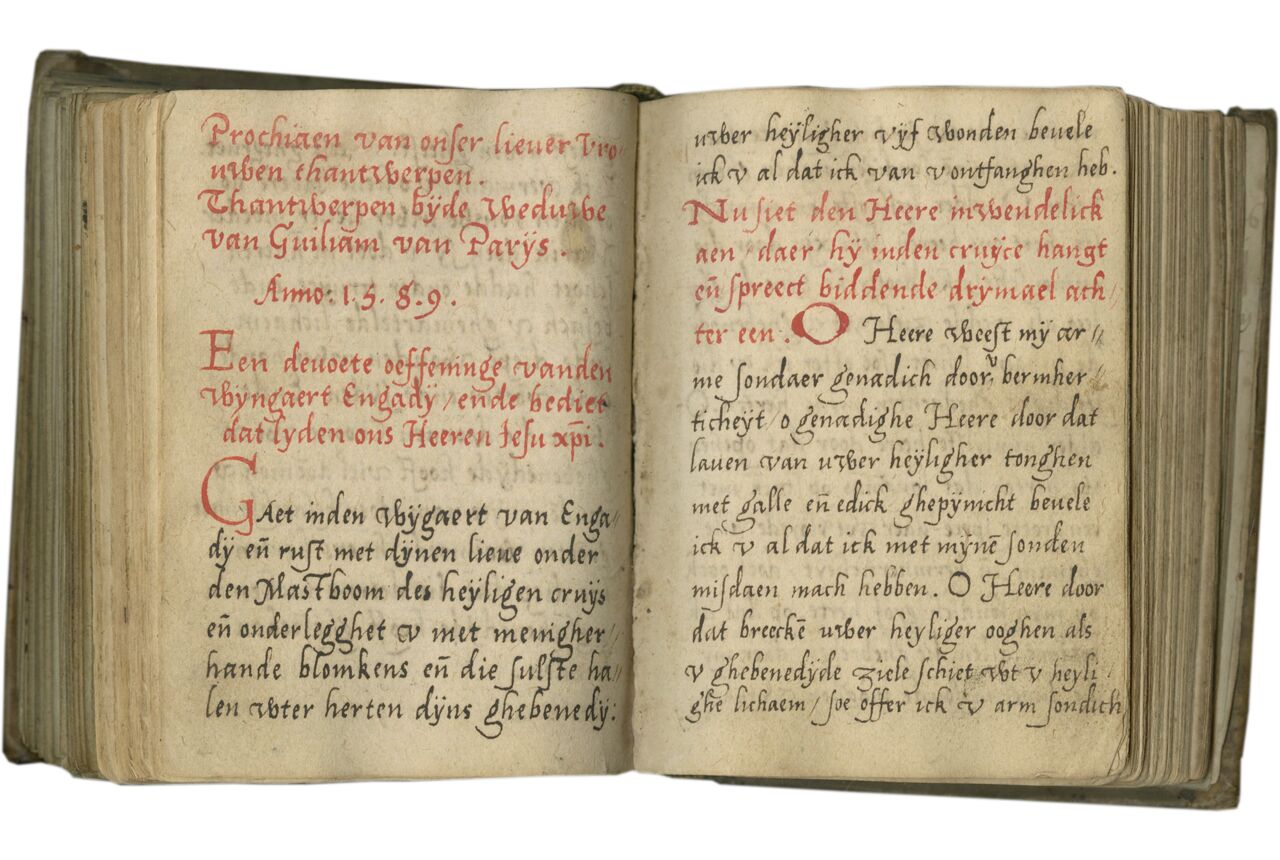 Prochiaen van onser lieuer vro-
uwen thantwerpen.
Thantwerpen bÿde weduwe
van Guiliam van Parÿs.
Anno. 1. 5. 8. 9.
Een deuoete oeffeninge vanden
wÿngaert Engadÿ / ende bediet
dat lÿden ons Heeren Iesu xp̄i.
GAet inden wÿgaert van Enga//
dÿ en̄ rust met dÿnen lieue onder
den Mastboom des heÿligen cruÿs
en̄ onderlegghet v met menigher//
hande blomkens en̄ die sulste ha//
len wter herten dÿns ghebenedÿ:
uwer heÿligher vÿf wonden beuele
ick v al dat ick van v ontfanghen heb.
Nu siet den Heere inwendelick
aen / daer hÿ inden cruÿce hangt
en̄ spreect biddende drÿmael ach/
ter een. O Heere weest mÿ ar//
me sondaer genadich door v bermher/
ticheÿt / o genadighe Heere door dat
lauen van uwer heÿligher tonghen
met galle en̄ edick ghepÿnicht beuele
ick v al dat ick met mÿnē sonden
misdaen mach hebben. O Heere door
dat breeckē uwer heyliger ooghen als
v ghebenedÿde ziele schiet wt v heyli/
ghe lichaem / soe offer ick v arm sondich